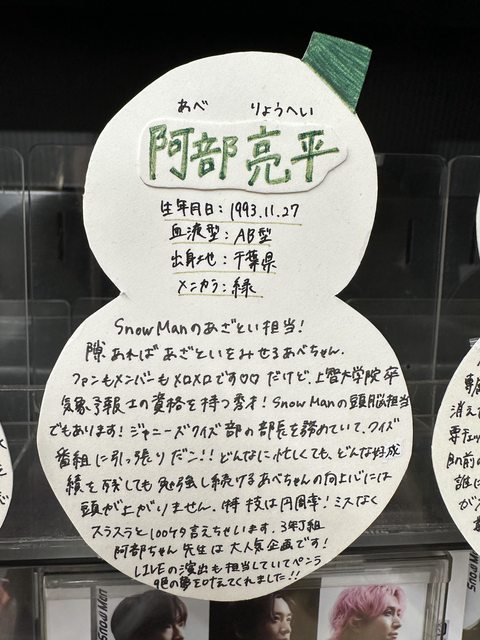 あべ りょうへい
阿部 亮平
生年月日：1993.11.27
血液型：AB型
出身地：千葉県
メンカラ：緑
Snow Manのあざとい担当！
隙あればあざといをみせるあべちゃん。
ファンもメンバーもメロメロです♡♡ だけど、上智大学院卒
気象予報士の資格を持つ秀才！Snow Manの頭脳担当
でもあります！ジャニーズクイズ部の部長を務めていて、クイズ
番組に引っ張りだこ!! どんなに忙しくても、どんな好成
績を残しても勉強し続けるあべちゃんの向上心には
頭が上がりません。特技は円周率！ミスなく
スラスラと100ケタ言えちゃいます。3年J組
阿部ちゃん先生は大人気企画です！
LIVEの演出も担当していてペンラ
9色の夢を叶えてくれました!!
Snow Man